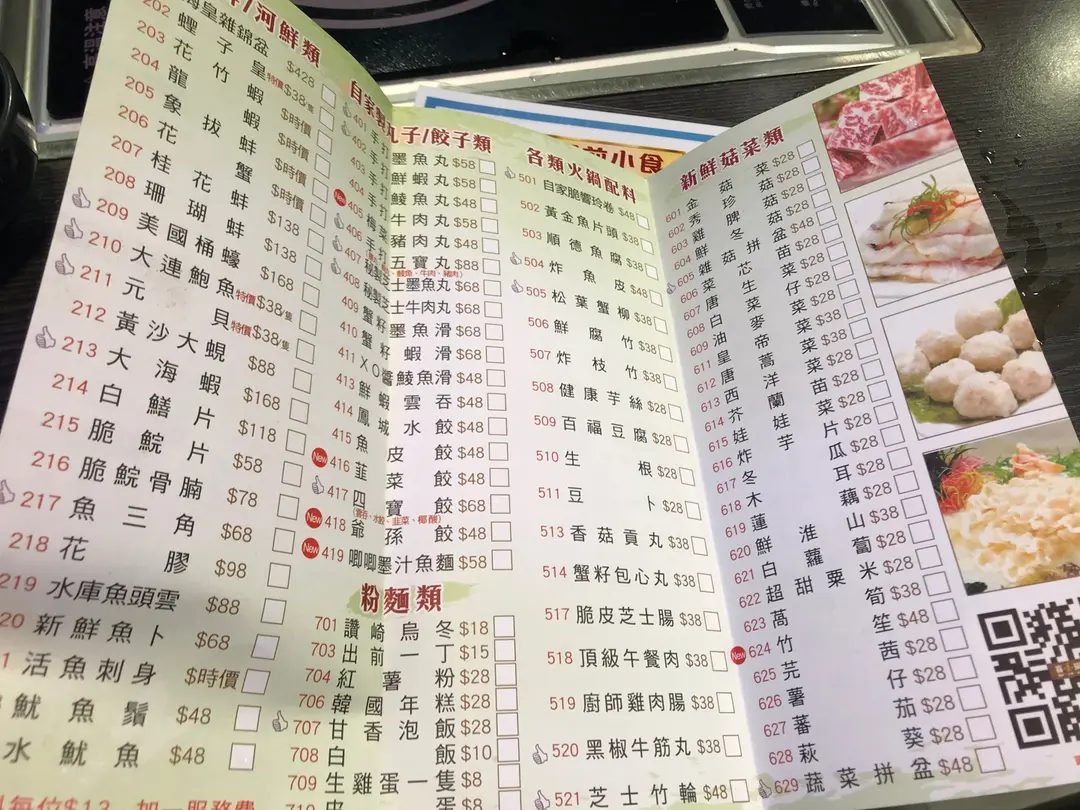 /河鮮類
海皇雜錦盆 $428
202 蟶子皇 特價$38隻
203 花竹蝦 $時價
204 龍蝦 $時價
205 象拔蚌 $時價
206 花蟹 $時價
207 桂花蚌 $138
208 珊瑚蚌 $138
209 美國桶蠔 $168
210 大連鮑魚 特價$38隻
211 元貝 特價$38隻
212 黃沙大蜆 $88
213 大海蝦 $168
214 白鱔片 $118
215 脆鯇片 $58
216 脆鯇骨腩 $78
217 魚三角 $68
218 花膠 $98
219 水庫魚頭雲 $88
20 新鮮魚卜 $68
1 活魚刺身 $時價
魷魚鬚 $48
水魷魚 $48
每位$13 加一服務費
自家製
丸子/餃子類
401 手打墨魚丸 $58
402 手打鮮蝦丸 $58
403 手打鯪魚丸 $48
404 手打牛肉丸 $58
New 405 梅菜豬肉丸 $48
406 手打五寶丸 $88
鯪魚、牛肉、豬肉)
407 秘製芝士墨魚丸 $68
408 秘製芝士牛肉丸 $68
409 蟹籽墨魚滑 $68
410 蟹籽蝦滑 $68
411 XO醬鯪魚滑 $48
413 鮮蝦雲吞 $48
414 鳳城水餃 $48
415 魚皮餃 $48
New 416 韮菜餃 $48
417 四寶餃 $68
(雲吞、水餃、韮菜、椰酸)
New 418 爺孫餃 $48
New 419 唧唧墨汁魚麵 $58
粉麵類
701 讚崎烏冬 $18
703 出前一丁 $15
704 紅薯粉 $28
706 韓國年糕 $28
707 甘香泡飯 $28
708 白飯 $10
709 生雞蛋一隻 $8
710 皮蛋 $8
前小食
各類火鍋配料
501 自家脆響玲卷 $48
502 黃金魚片頭 $38
503 順德魚腐 $38
504 炸魚皮 $48
505 松葉蟹柳 $38
506 鮮腐竹 $38
507 炸枝竹 $38
508 健康芋絲 $28
509 百福豆腐 $28
510 生根 $28
511 豆卜 $28
513 香菇貢丸 $38
514 蟹籽包心丸 $38
517 脆皮芝士腸 $38
518 頂級午餐肉 $38
519 廚師雞肉腸 $38
520 黑椒牛筋丸 $38
521 芝士竹輪 $48
新鮮菇菜類
601 金菇 $28
602 秀珍菇 $28
603 雞脾菇 $28
604 鮮冬菇 $28
605 雜菇拼盆 $48
606 菜芯苗 $28
607 唐生菜 $28
608 白菜仔 $28
609 油麥菜 $38
611 皇帝菜 $38
612 唐蒿菜 $28
613 西洋菜 $28
614 芥蘭苗 $28
615 娃娃菜 $28
616 炸芋片 $28
617 冬瓜 $28
618 木耳 $28
619 蓮藕 $28
620 鮮淮山 $38
621 白蘿蔔 $28
622 超甜粟米 $28
623 萵筍 $38
New 624 竹笙 $48
625 芫茜 $28
626 薯仔 $28
627 蕃茄 $28
628 萩葵 $28
629 蔬菜拼盆 $48